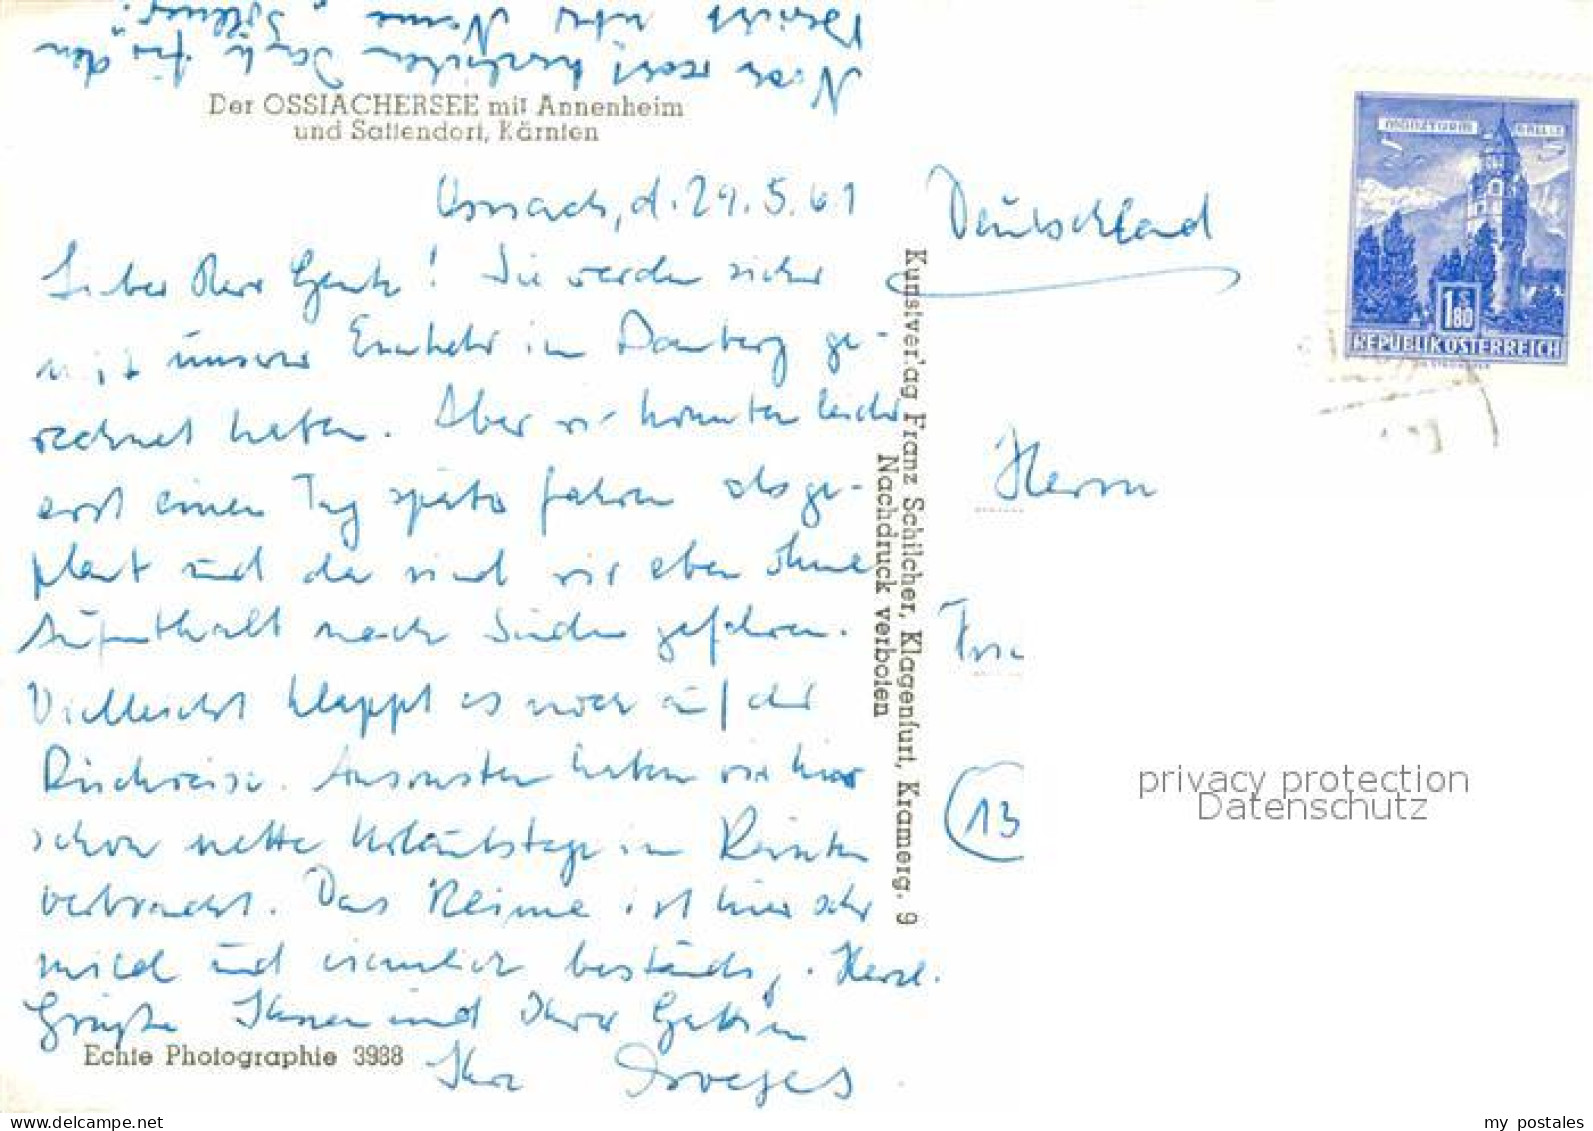 Noch recht herzlichen Dank für den
Bericht über Name
Der OSSIACHERSEE mit Annenheim
und Sattendorf, Kärnten
Ossiach, d. 29.5.61
Lieber Herr! Sie werden sicher
mit unserer Einkehr in Bamberg ge-
rechnet haben. Aber wir konnten leider
erst einen Tag später fahren als ge-
plant und da sind wir eben ohne
Aufenthalt nach Süden gefahren.
Vielleicht klappt es noch auf der
Rückreise. Ansonsten haben wir hier
schon nette Urlaubstage in Kärnten
verbracht. Das Klima ist hier sehr
mild und ziemlich beständig. Herzl.
Grüße Ihnen und Ihrer Gattin
Ihre
Echte Photographie 3988
Kunstverlag Franz Schilcher, Klagenfurt, Kramerg. 9
Nachdruck verboten
Deutschland
Herrn
13
MÜNZTURM HALL i.T.
S
1.80
REPUBLIK ÖSTERREICH
privacy protection
Datenschutz
my postales